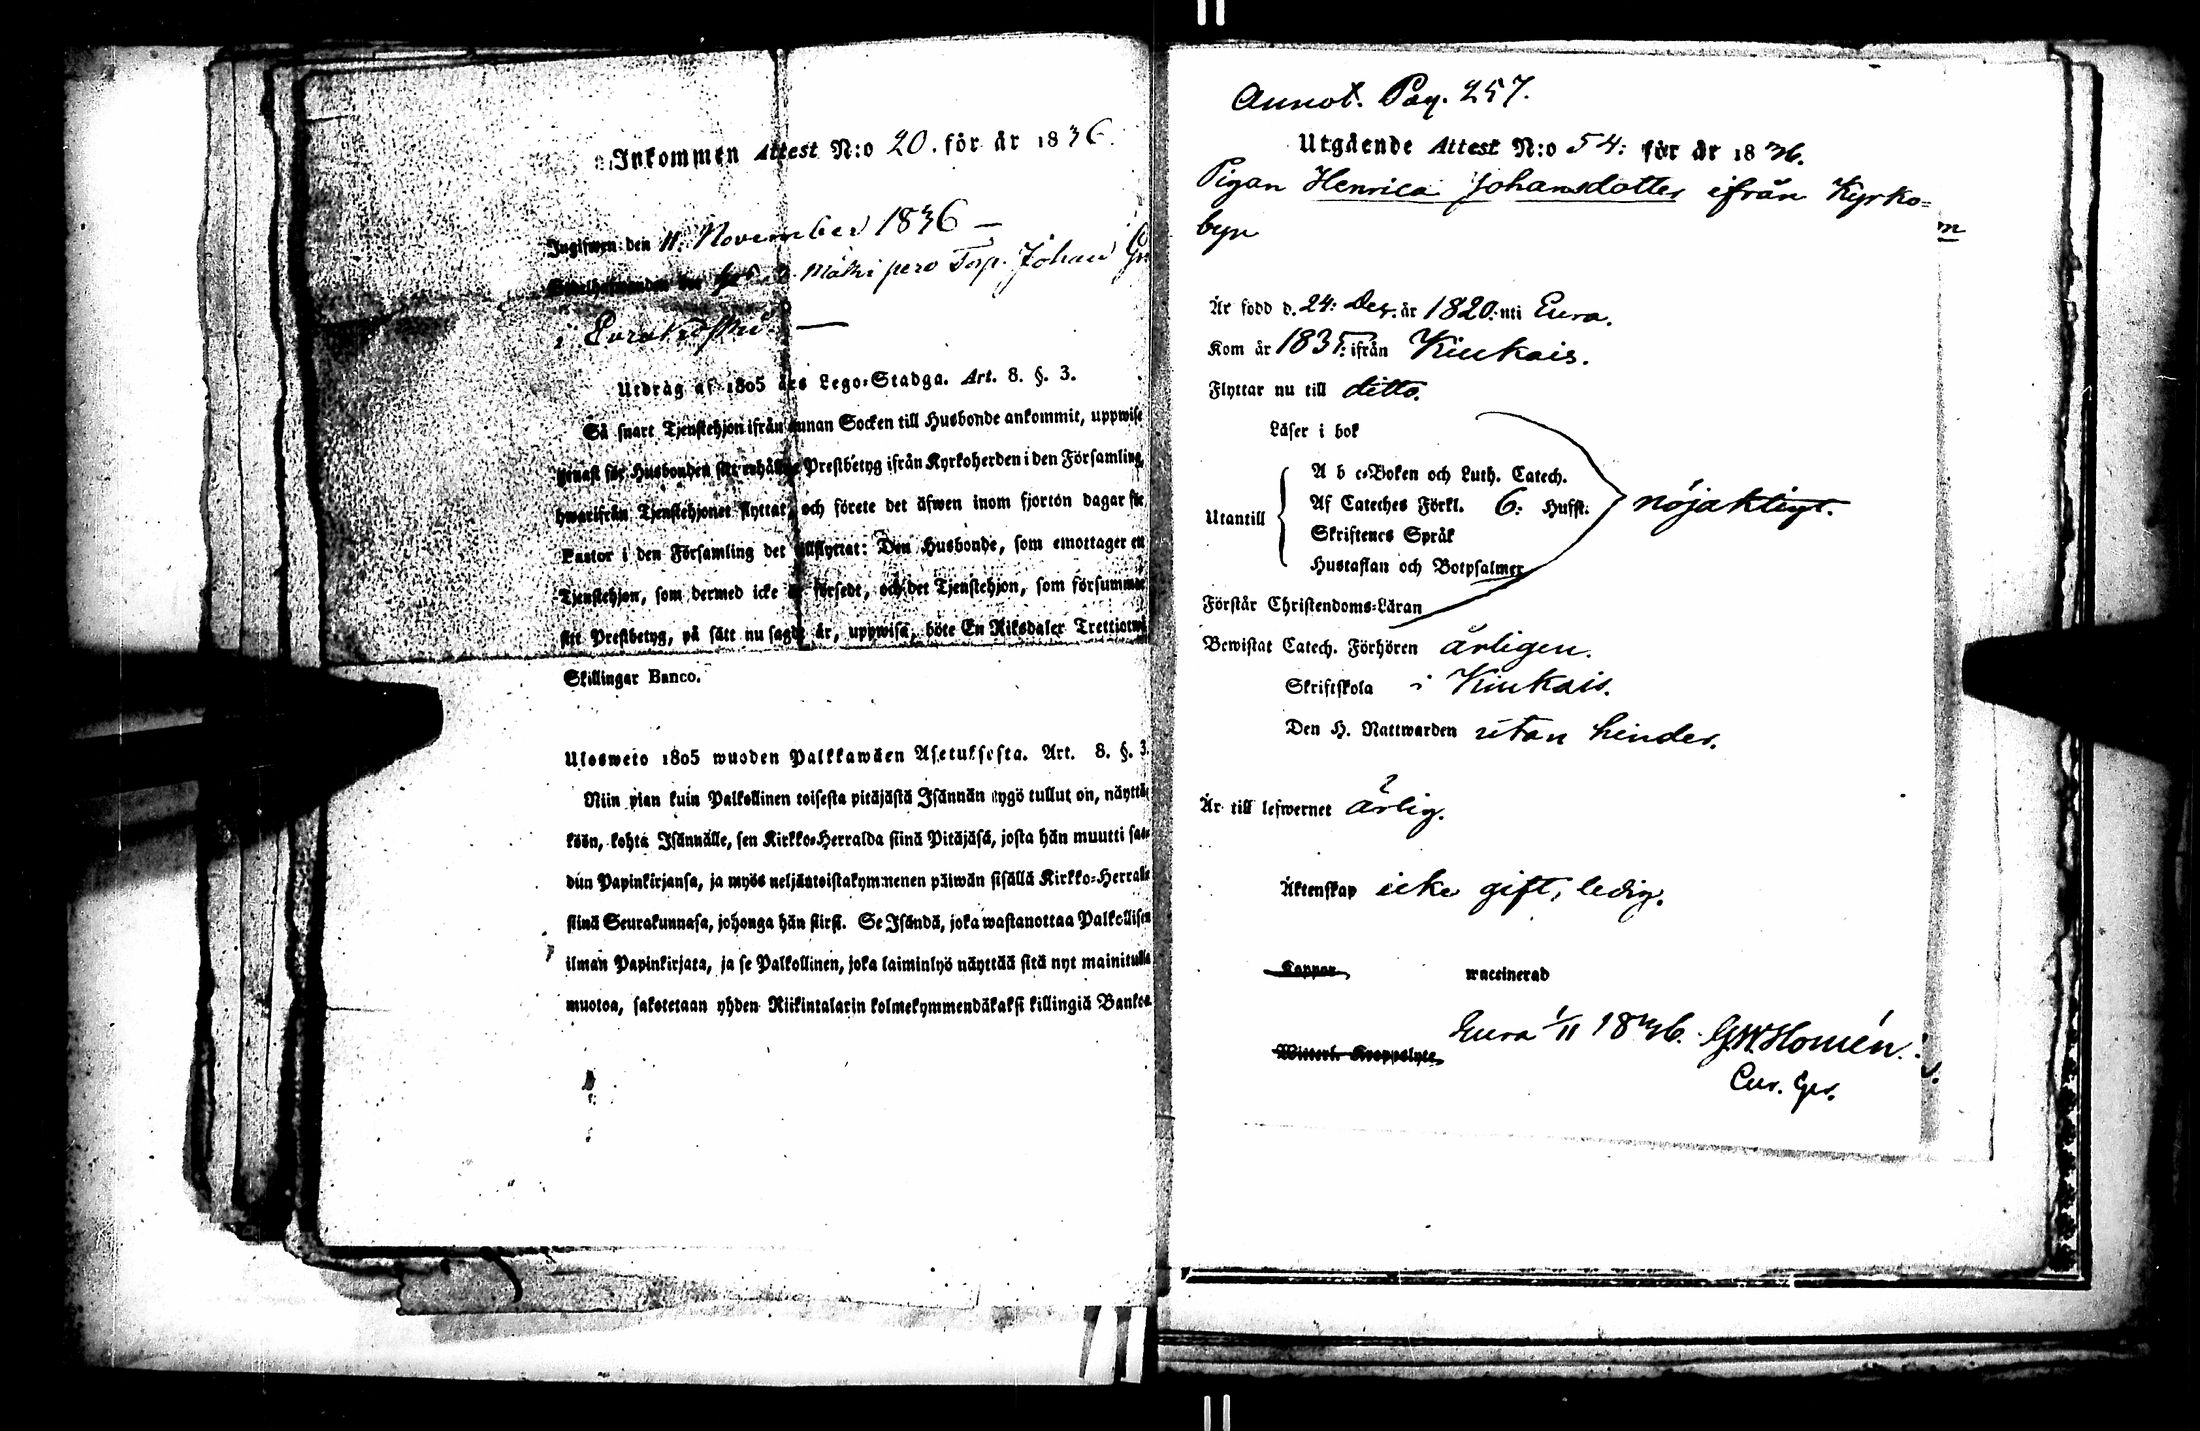 Inkommen Attest N:o 20. för år 1836.
Ingifwen den 11. November 1836 —
Mäkiperö Torp. Johan
i
Utdrag af 1805 års Lego-Stadga. Art. 8. §. 3.
Så snart Tjenstehjon ifrån annan Socken till Husbonde ankommit, uppwise
genast för Husbonden sitt erhållne Prestbetyg ifrån Kyrkoherden i den Församling,
hwarifrån Tjenstehjonet flyttat, och förete det äfwen inom fjorton dagar för
Pastor i den Församling det tillflyttat: Den Husbonde, som emottager en
Tjenstehjon, som dermed icke är försedt, och det Tjenstehjon, som försummar
sitt Prestbetyg, på sätt nu sagdt är, uppwisa, böte En Riksdaler Trettiotwå
Skillingar Banco.
Ulosweto 1805 wuoden Palkkawäen Asetuksesta. Art. 8. §. 3.
Niin pian kuin Palkollinen toisesta pitäjästä Isännän tygö tullut on, näyttä-
köön, kohta Isännälle, sen Kirkko-Herralda siinä Pitäjäsä, josta hän muutti saa-
dun Papinkirjansa, ja myös neljäntoistakymmenen päiwän sisällä Kirkko-Herralle
siinä Seurakunnasa, johonga hän siirsi. Se Isändä, joka wastanottaa Palkollisen
ilman Papinkirjata, ja se Palkollinen, joka laiminlyö näyttää sitä nyt mainitulla
muotoa, sakotetaan yhden Riikintalarin kolmekymmendäkaksi killingiä Bankoa
Annot. Pag. 257.
Utgående Attest N:o 54: för år 1836.
Pigan Henrica Johansdotter ifrån Kyrko=
byn
Är född d. 24: Dec. år 1820. uti Eura.
Kom år 1835: ifrån Kiukais.
Flyttar nu till ditto.
Läser i bok
A b c-Boken och Luth. Catech.
Af Cateches Förkl. 6: Hufst.
nöjaktigt.
Utantill
Skriftenes Språk
Hustaflan och Botpsalmer
Förstår Christendoms-Läran
Bewistat Catech. Förhören årligen.
Skriftskola i Kiukais.
Den H. Nattwarden utan hinder.
Är till lefwernet ärlig.
Äktenskap icke gift, ledig.
Koppor waccinerad
Eura 1/11 1836. G.W. Homén.
Witterl. Kroppslyte
Cur. Ges.